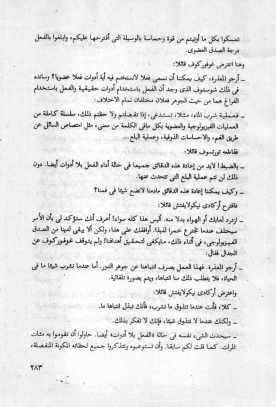 تمسكوا بكل ما أوتيتم من قوة وحماسة بالوسيلة التى أقترحها عليكم، وابلغوا بالفعل
درجة الصدق العضوى.
وهنا اعترض غوفوركوف قائلا:
ـ أرجو المعذرة، كيف يمكننا أن نسمى فعلا لانستخدم فيه أية أدوات فعلا عضويا؟ وسانده
فى ذلك شوستوف الذى وجد أن الفعل باستخدام أدوات حقيقية والفعل باستخدام
الفراغ هما من حيث الجوهر فعلان مختلفان تمام الاختلاف:
ـ فعملية شرب الماء، مثلا، تستدعى، إذا تفضلتم ولا حظتم ذلك، سلسلة كاملة من
العمليات الفيزيولوجية والعضوية بكل مافى الكلمة من معنى، مثل امتصاص السائل عن
طريق الفم، والاحساسات الذوقية، وعملية البلع...
فقاطعه تورتسوف قائلا:
ـ بالضبط! لابد من إعادة هذه الدقائق جميعها فى حالة أداء الفعل بلا أدوات أيضا. ودون
ذلك لن تتم عملية البلع التى تتحدث عنها.
ـ وكيف يمكننا إعادة هذه الدقائق مادمنا لانضع شيئا فى فمنا؟
فأقترح أركادى نيكولايفتش قائلا:
ـ ازدرد لعابك أو الهواء بدلا منه. أليس هذا كله سواء؟ أعرف أنك ستؤكد لى بأن الأمر
سيختلف عندما تتجرع خمرا لذيذا. أوافقك على هذا، ولكن ألا يبقى لدينا من الصدق
الفيزيولوجى، فى أثناء ذلك، مايكفى لتحقيق أهدافنا؟ ولم يتوقف غوفوركوف عن
الجدال فقال:
ـ أرجو المعذرة. فهذا العمل يصرف انتباهنا عن جوهر الدور. أما عندما نشرب شيئا ما فى
الحياة، فلا يتطلب ذلك منا انتباها، ويتم بصورة تلقائية.
واعترض أركادى نيكولايفتش قائلا:
ـ كلا، فأنت عندما تتذوق ما تشربه، فأنك تبذل انتباها ما.
ـ ولكنك عندما لا تتذوق شيئا، فإنك لا تفكر بذلك.
ـ سيحدث الشىء نفسه فى حالة «الفعل بلا أدوات» أيضا. حاولوا أن تقوموا به مئات
المرات، كما قلت لكم سابقا. وأن تستوعبوه وتتذكروا جميع لحظاته المكونة المنفصلة،
٢٨٣